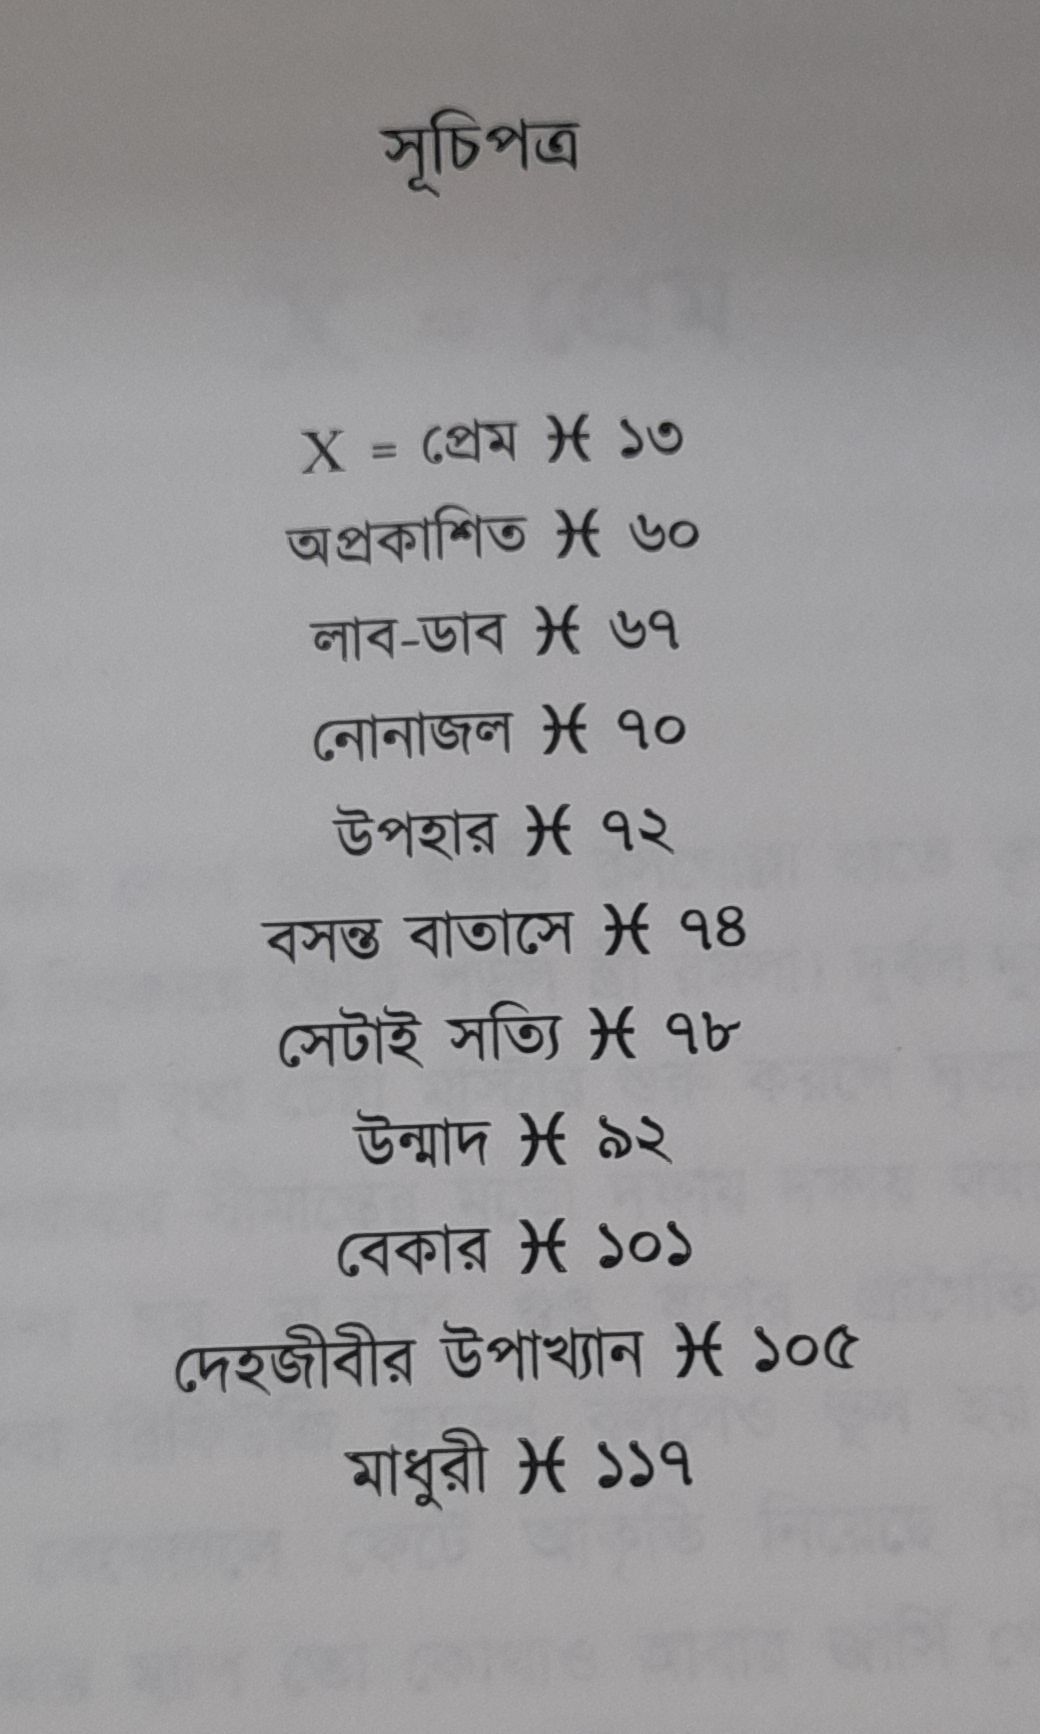 সূচিপত্র
X = প্রেম ♓ ১৩
অপ্রকাশিত ♓ ৬০
লাব-ডাব ♓ ৬৭
নোনাজল ♓ ৭০
উপহার ♓ ৭২
বসন্ত বাতাসে ♓ ৭৪
সেটাই সত্যি ♓ ৭৮
উন্মাদ ♓ ৯২
বেকার ♓ ১০১
দেহজীবীর উপাখ্যান ♓ ১০৫
মাধুরী ♓ ১১৭